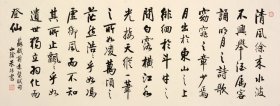 清風徐來水波
不興舉酒屬客
誦明月之詩歌
窈窕之章少焉
月出於東山之上
徘徊於斗牛之
間白露橫江水
光接天縱一葦
之所如凌萬頃
之茫然浩浩乎如
馮虛御風而不知
其所止飄飄乎如
遺世獨立羽化而
登仙
蘇軾前赤壁賦句